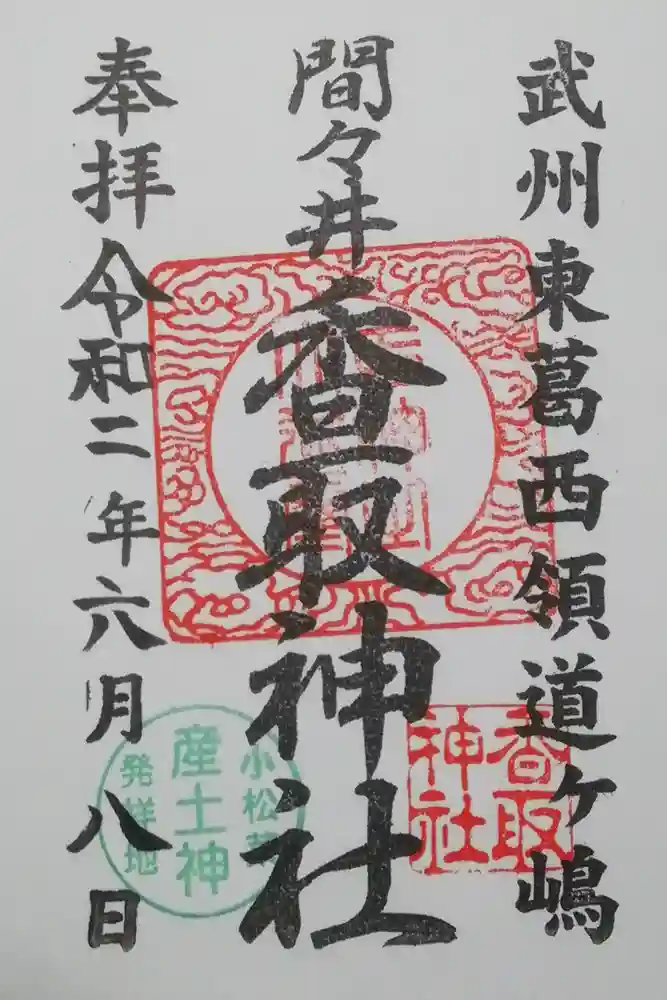 武州東葛西領道ヶ嶋
間々井
香取神社
奉拝令和二年六月八日
香取
神社
小松菜
産土神
発祥地